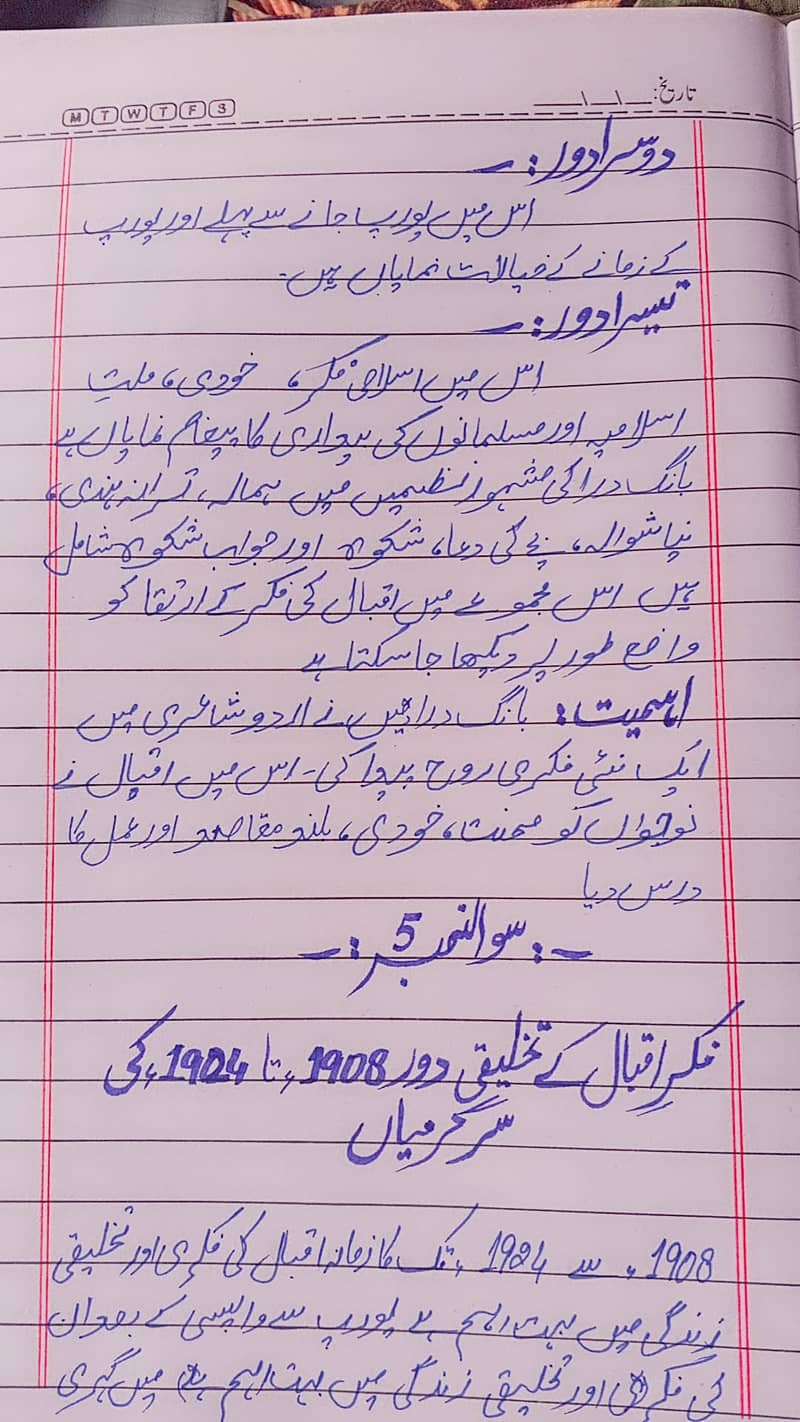 M T W T F S
تاریخ: __\__\__
دوسرا دور:-
اس میں یورپ جانے سے پہلے اور یورپ
کے زمانے کے خیالات نمایاں ہیں۔
تیسرا دور:-
اس میں اسلامی فکر، خودی، ملتِ
اسلامیہ اور مسلمانوں کی بیداری کا پیغام نمایاں ہے
بانگ درا کی مشہور نظمیں میں ہمالہ، ترانہ ہندی،
نیا شوالہ، بچے کی دعا، شکوہ اور جواب شکوہ شامل
ہیں اس مجموعے میں اقبال کی فکر کے ارتقا کو
واضع طور پر دیکھا جاسکتا ہے
اہمیت: بانگ درا نے اردو شاعری میں
ایک نئی فکری روح پیدا کی۔ اس میں اقبال نے
نوجواں کو محنت، خودی، بلند مقاصد اور عمل کا
درس دیا
-: سوالنمبر 5 :-
فکرِ اقبال کے تخلیقی دور 1908ء تا 1924ء کی
سرگرمیاں
1908ء سے 1924ء تک کا زمانہ اقبال کی فکری اور تخلیقی
زندگی میں بہت اہم ہے یورپ سے واپسی کے بعد ان
کی فکر اور تخلیقی زندگی میں بہت اہم میں گہری